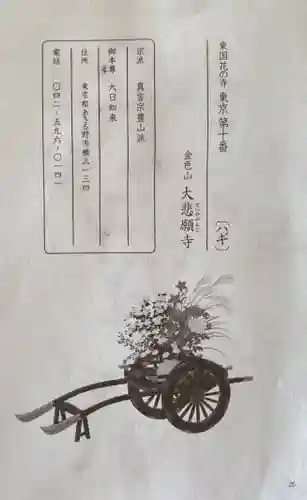 東国花の寺 東京 第十番
〔ハギ〕
金色山 大悲願寺
だいひがんじ
宗派 真言宗豊山派
御本尊 大日如来
住所 東京都あきる野市横沢一三四
電話 〇四二‐五九六‐〇一四一
26